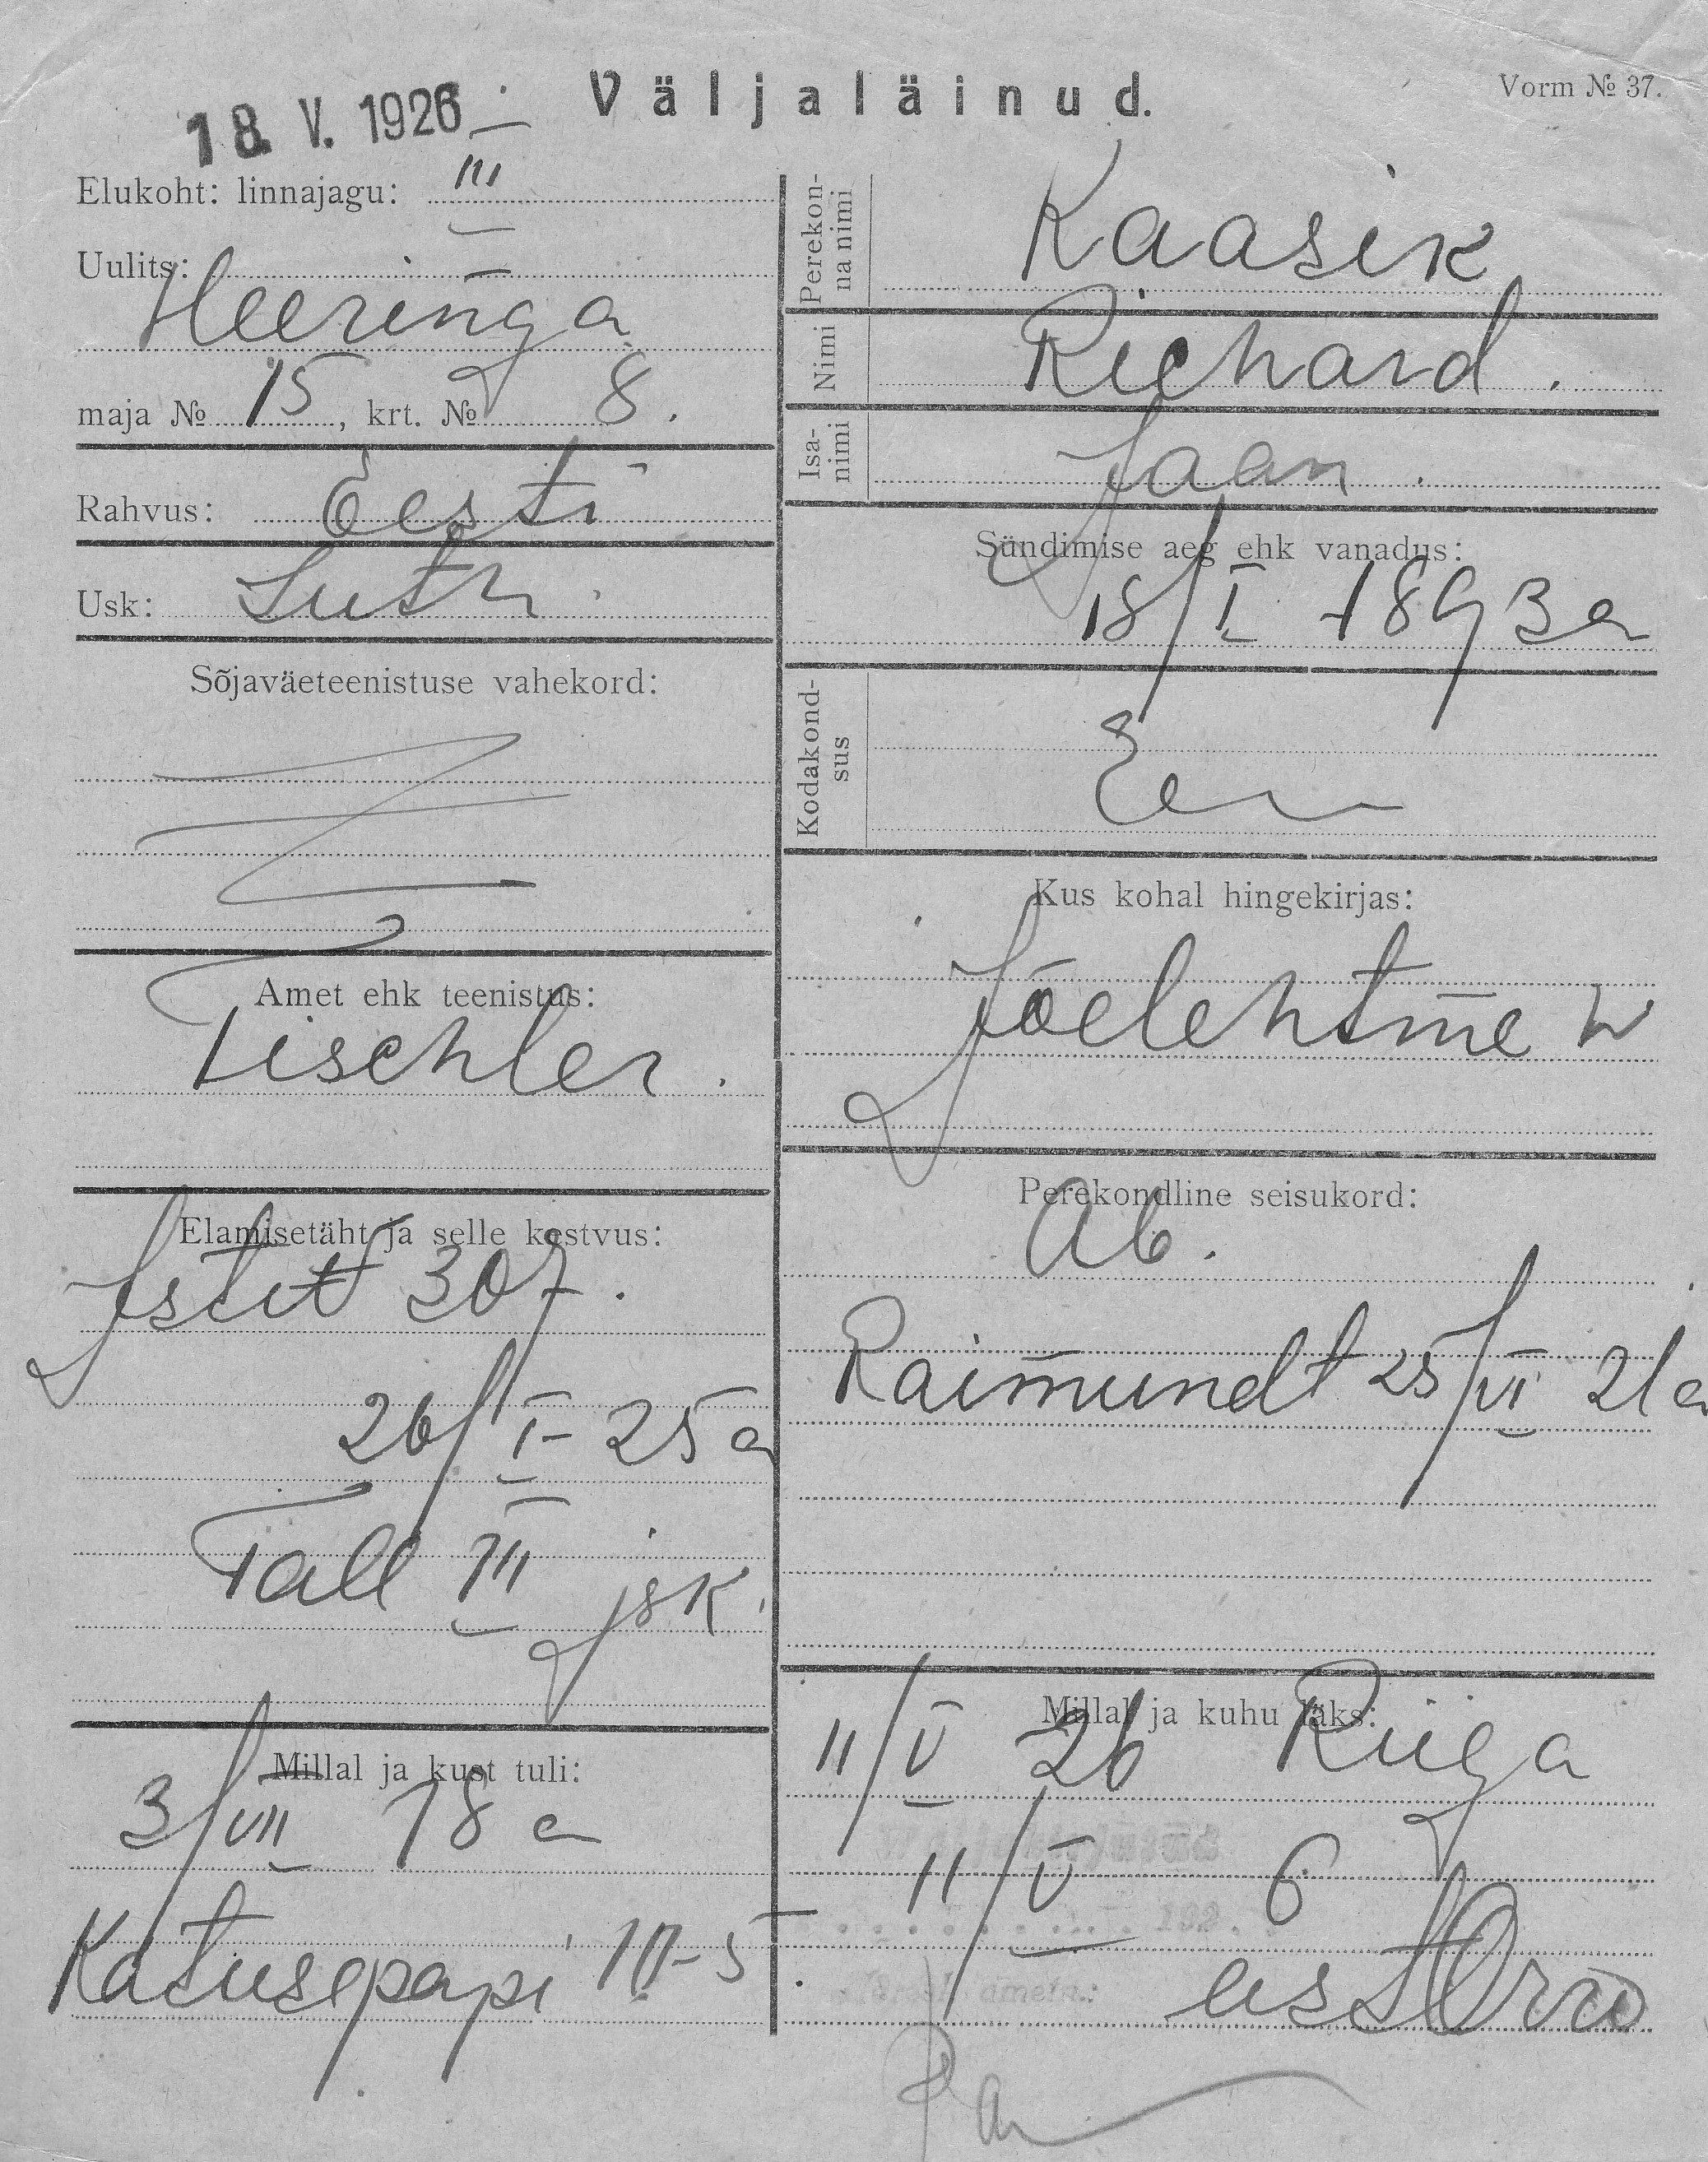 18. V. 1926
Väljaläinud.
Vorm № 37.
Elukoht: linnajagu: III
Uulits:
Heeringa
maja № 15, krt. № 8.
Rahvus: Eesti
Usk: Luth.
Sõjaväeteenistuse vahekord:
Amet ehk teenistus:
Tischler.
Elamisetäht ja selle kestvus:
307.
26/I - 25 a
Tall III jsk.
Millal ja kust tuli:
3/VII 18 a
Katusepapi 10-5.
Perekonna nimi
Kaasik
Nimi
Richard.
Isanimi
Jaan.
Sündimise aeg ehk vanadus:
18/I 1893 a
Kodakondsus
Kus kohal hingekirjas:
Jõelehtme w
Perekondline seisukord:
Ab.
Raimundt 25/VI 21 a
Millal ja kuhu läks:
11/V 26 Riiga
11/V 6